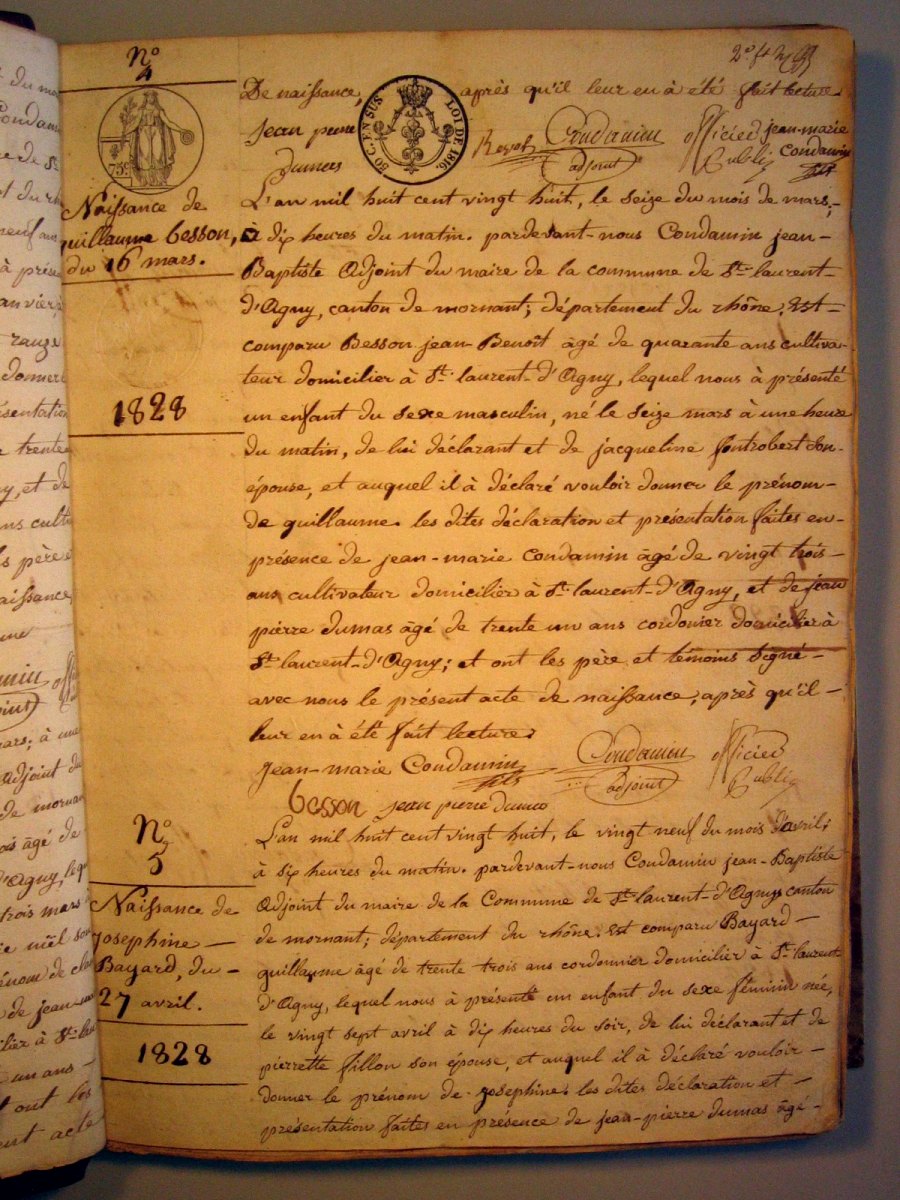 N.o
4
De naissance, après qu'il leur en à été fait lecture.
jean pierre
dumas
Condamin officier jean-marie
adjoint Public Condamin
fils
75c.
80 C. EN SUS
LOI DE 1816.
Naissance de
guillaume besson,
du 16 mars.
1828
L'an mil huit cent vingt huit, le seize du mois de mars,
à dix heures du matin. pardevant-nous Condamin jean-
Baptiste Adjoint du maire de la commune de St. laurent-
d'Agny, canton de mornant; département du rhône. Est-
comparu Besson jean-Benoît âgé de quarante ans cultiva-
teur domicilier à St. laurent-d'Agny, lequel nous à présenté
un enfant du sexe masculin, né le seize mars à une heure
du matin, de lui déclarant et de jacqueline fontrobert son-
épouse, et auquel il à déclaré vouloir donner le prénom-
de guillaume. les dites déclaration et présentation faites en-
présence de jean-marie condamin âgé de vingt trois-
ans cultivateur domicilier à St. laurent-d'Agny, et de jean
pierre dumas âgé de trente un ans cordonier domicilier à
St. laurent-d'Agny; et ont les père et témoins signé-
avec nous le présent acte de naissance, après qu'il-
leur en à été fait lecture.
jean-marie Condamin fils Condamin officier
adjoint Public
besson jean pierre dumas
N.o
5
Naissance de
Josephine-
Bayard, du-
27 avril.
1828
L'an mil huit cent vingt huit, le vingt neuf du mois d'avril,
à six heures du matin. pardevant-nous Condamin jean-Baptiste
Adjoint du maire de la Commune de St. laurent-d'Agny, canton
de mornant; département du rhône. Est comparu Bayard-
guillaume âgé de trente trois ans cordonnier domicilier à St. laurent-
d'Agny, lequel nous à présenté un enfant du sexe féminin née,
le vingt sept avril à dix heures du soir, de lui déclarant et de
pierrette fillon son épouse, et auquel il à déclaré vouloir-
donner le prénom de-josephine. les dites déclaration et-
présentation faites en présence de jean-pierre dumas âgé-